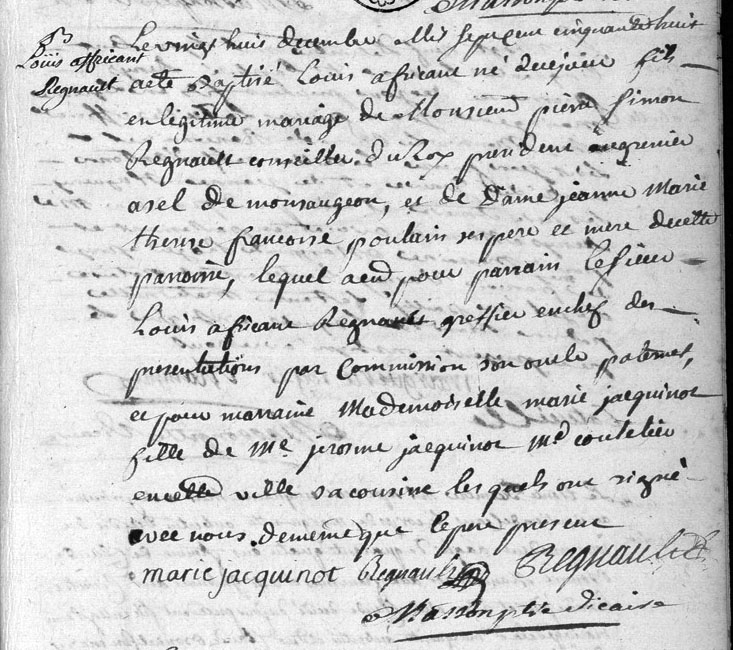 B
Louis affricant
Regnault
Le vingt huit decembre mil sept cent cinquante huit
a eté baptisé Louis africant né du jour fils
en légitime mariage de Monsieur pierre Simon
Regnault conseiller du Roy president au grenier
a sel de monsaugeon, et de Dame jeanne Marie
therese françoise poulain ses pere et mere de cette
paroisse, lequel a eu pour parrain le sieur
Louis africant Regnault greffier en chef des
presentations par Commission son oncle paternel,
et pour marraine Mademoiselle marie jacquinot
fille de Me jerosme jacquinot Md coutelier
en cette ville sa cousine lesquels ont signé
avec nous de meme que le pere present
marie jacquinot Regnault Regnault
Masson ptre vicaire